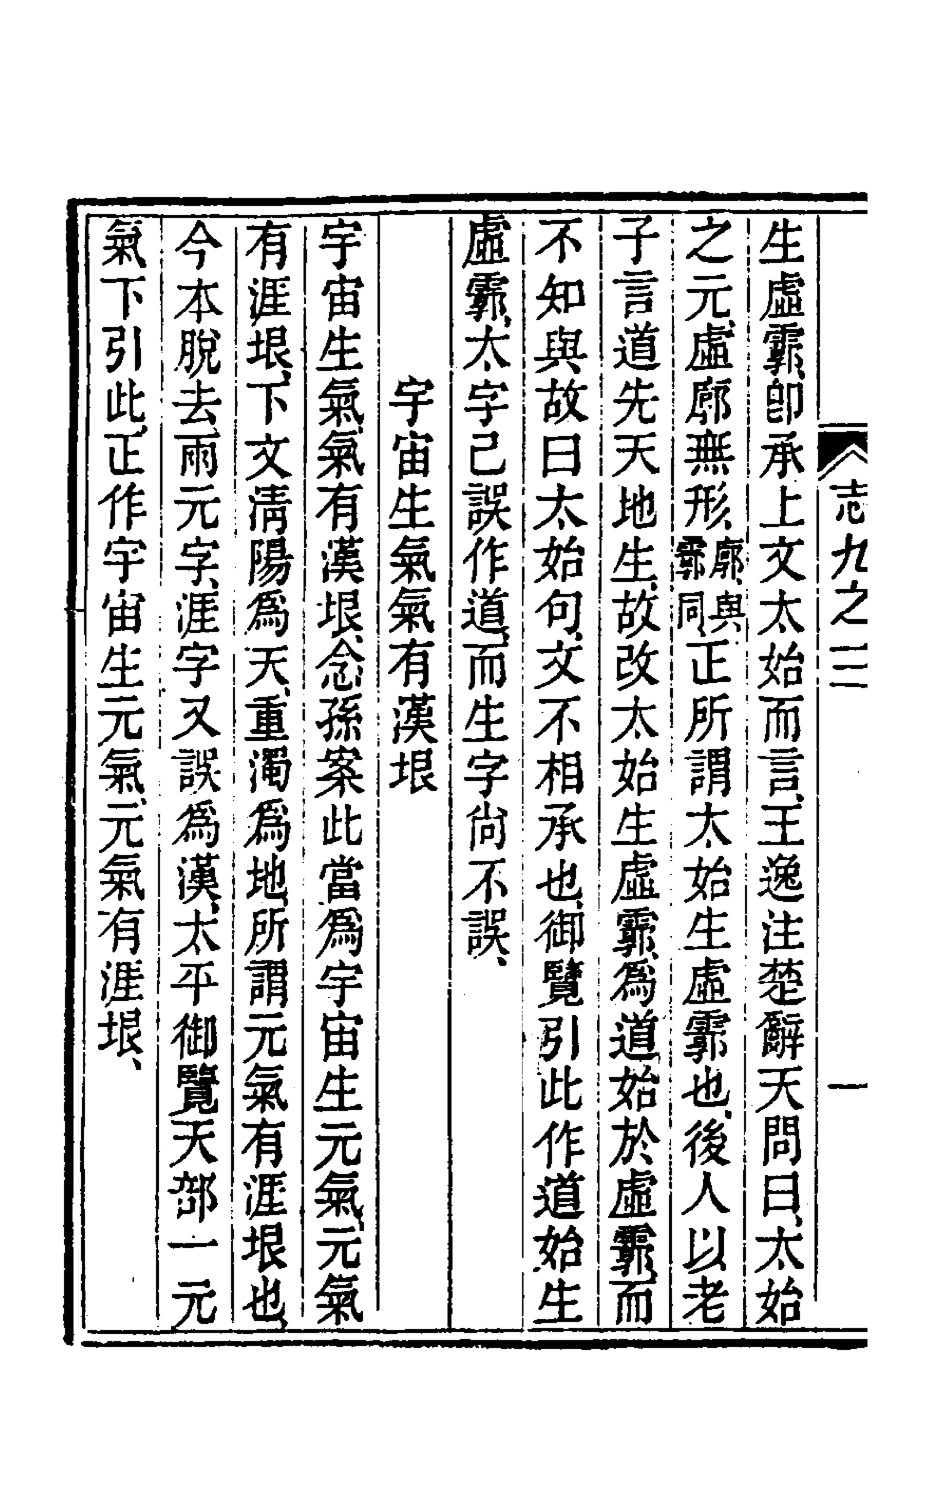 志九之三　一
生虛霩、卽承上文太始而言、王逸注楚辭天問曰、太始
之元、虛廓無形、廓與霩同、正所謂太始生虛霩也、後人以老
子言道先天地生、故改太始生虛霩、爲道始於虛霩、而
不知與故曰太始句、文不相承也、御覽引此作道始生
虛霩、太字己誤作道、而生字尙不誤、
宇宙生氣氣有漢垠
宇宙生氣、氣有漢垠、念孫案此當爲宇宙生元氣、元氣
有涯垠、下文淸陽爲天、重濁爲地、所謂元氣有涯垠也、
今本脫去兩元字、涯字又誤爲漢、太平御覽天部一元
氣下引此、正作宇宙生元氣、元氣有涯垠、